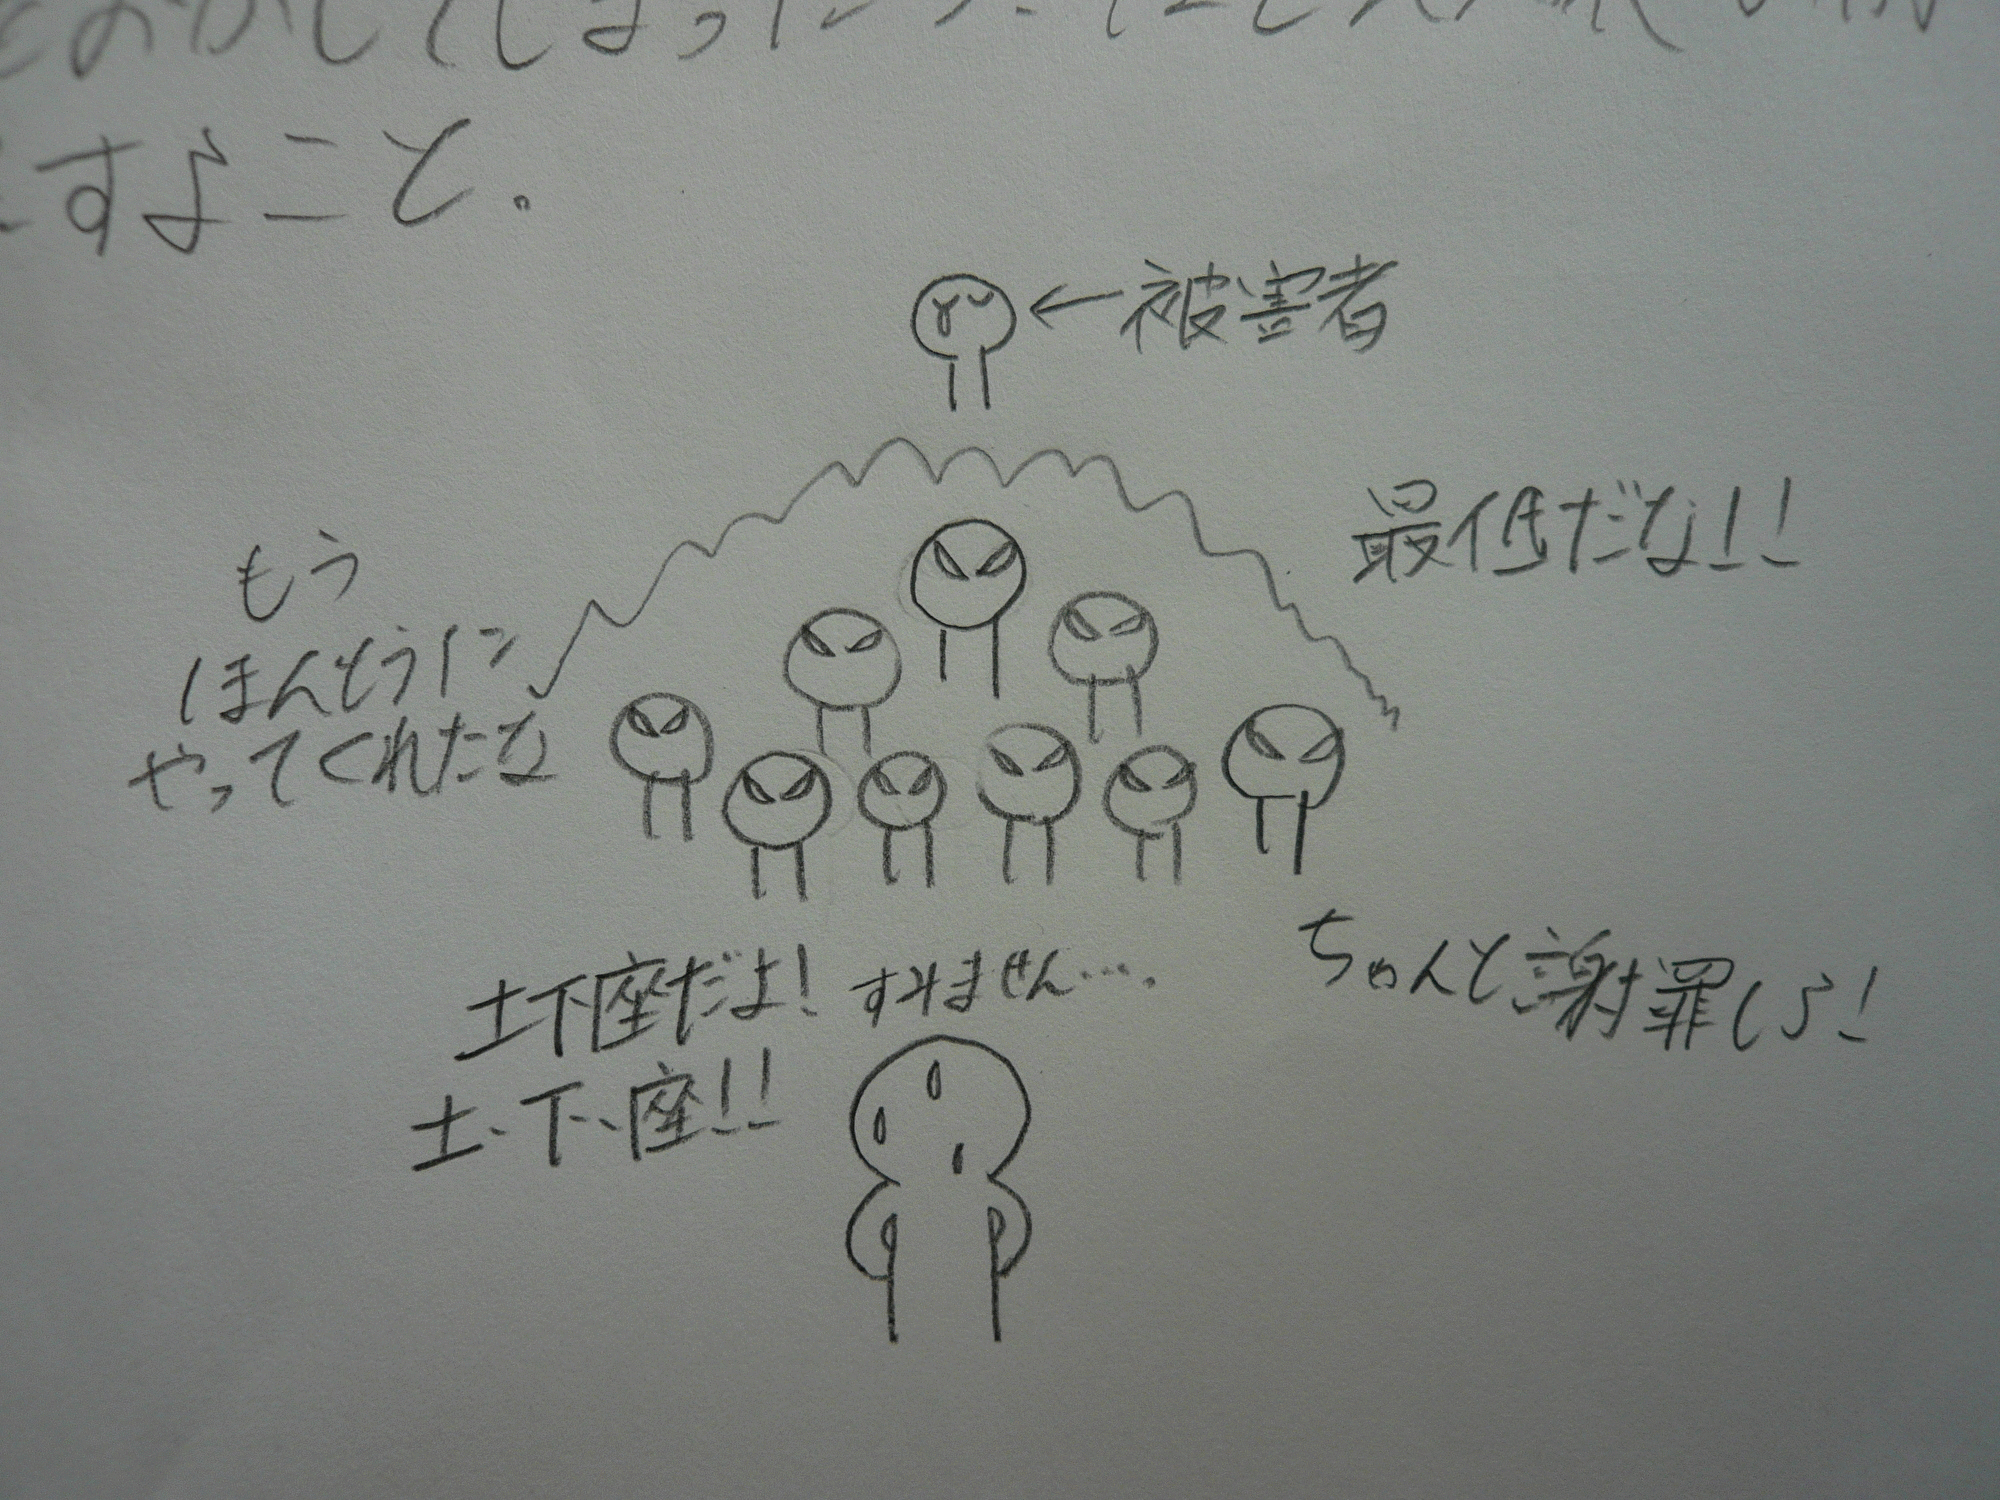 をおかしてしまった
すよこと。
←被害者
最低だな!!
もう
ほんとうに
やってくれたな
ちゃんと謝罪しろ!
土下座だよ!
すみません….
土・下・座!!